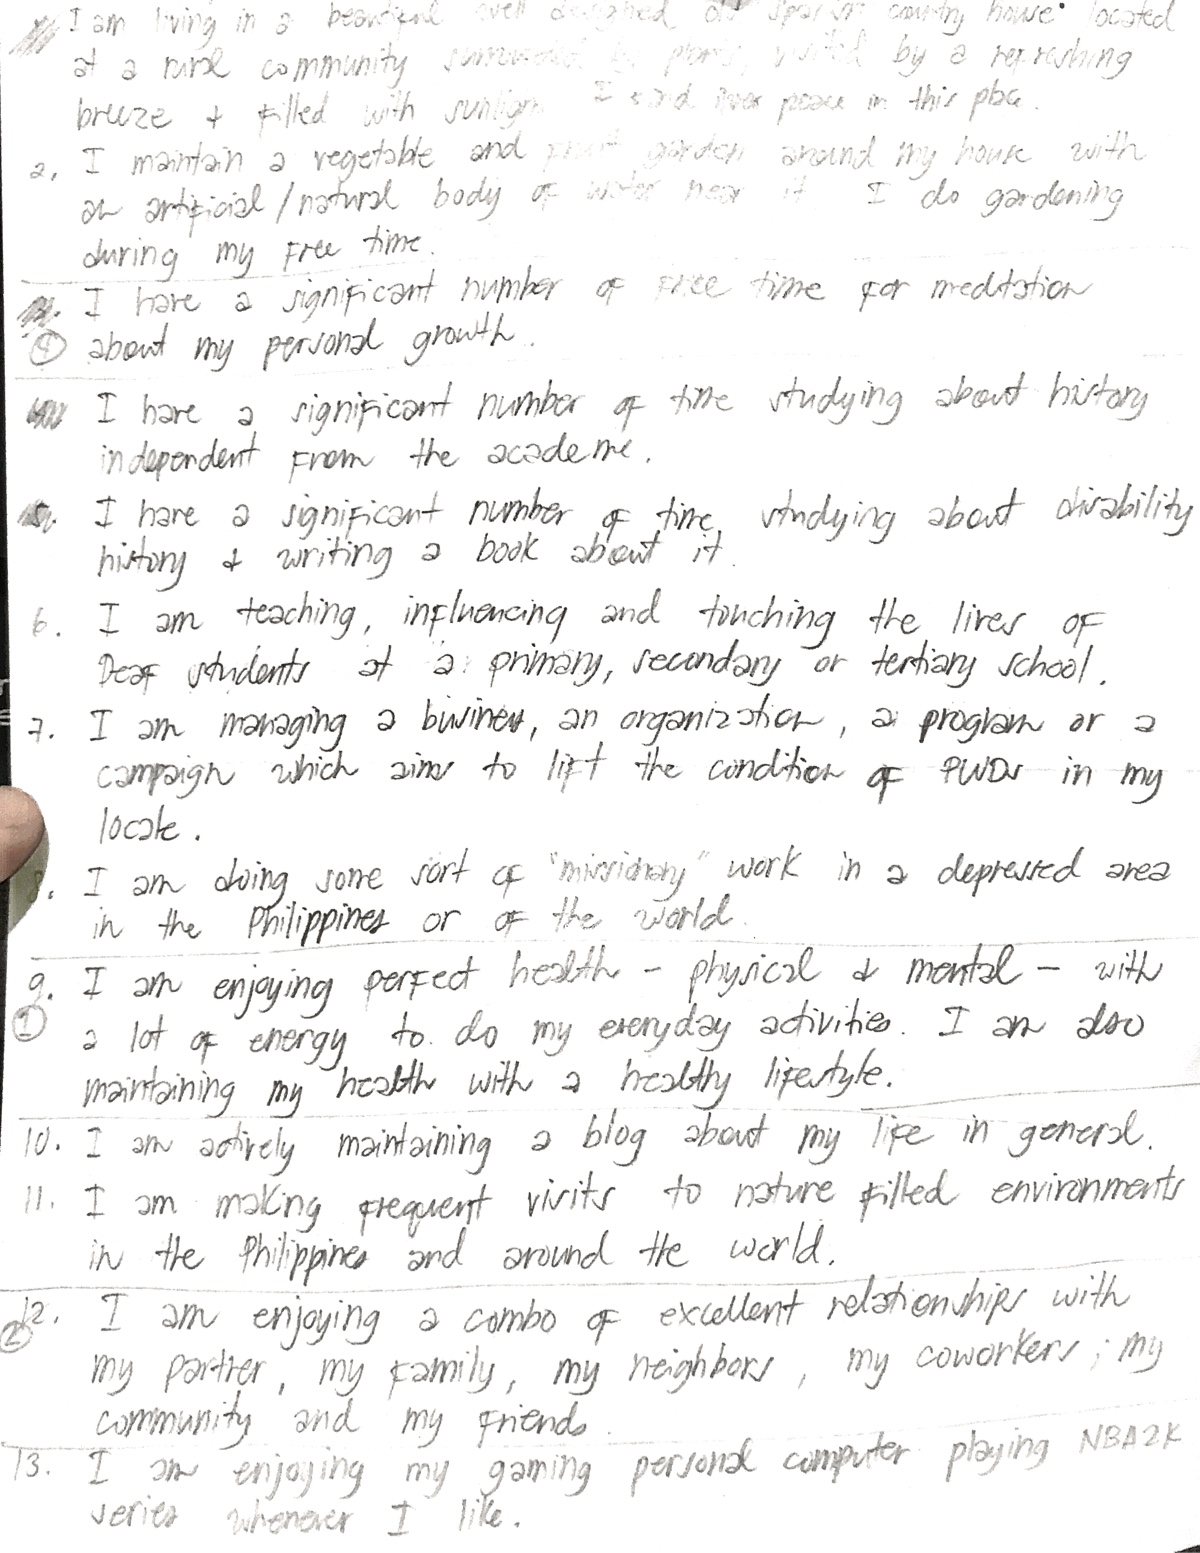 I am living in a beautiful well designed old Spanish country house located
at a rural community surrounded by plants, visited by a refreshing
breeze + filled with sunlight. I find inner peace in this place.
2. I maintain a vegetable and fruit garden around my house with
an artificial/natural body of water near it. I do gardening
during my free time.
I have a significant number of free time for meditation
④ about my personal growth.
I have a significant number of time studying about history
independent from the academe.
5. I have a significant number of time studying about disability
history & writing a book about it.
6. I am teaching, influencing and touching the lives of
Deaf students at a primary, secondary or tertiary school.
7. I am managing a business, an organization, a program or a
campaign which aims to lift the condition of PWDs in my
locale.
8. I am doing some sort of "missionary" work in a depressed area
in the Philippines or of the world.
9. I am enjoying perfect health - physical & mental - with
① a lot of energy to do my everyday activities. I am also
maintaining my health with a healthy lifestyle.
10. I am actively maintaining a blog about my life in general.
11. I am making frequent visits to nature filled environments
in the Philippines and around the world.
12. I am enjoying a combo of excellent relationships with
② my partner, my family, my neighbors, my coworkers, my
community and my friends.
13. I am enjoying my gaming personal computer playing NBA2K
series whenever I like.